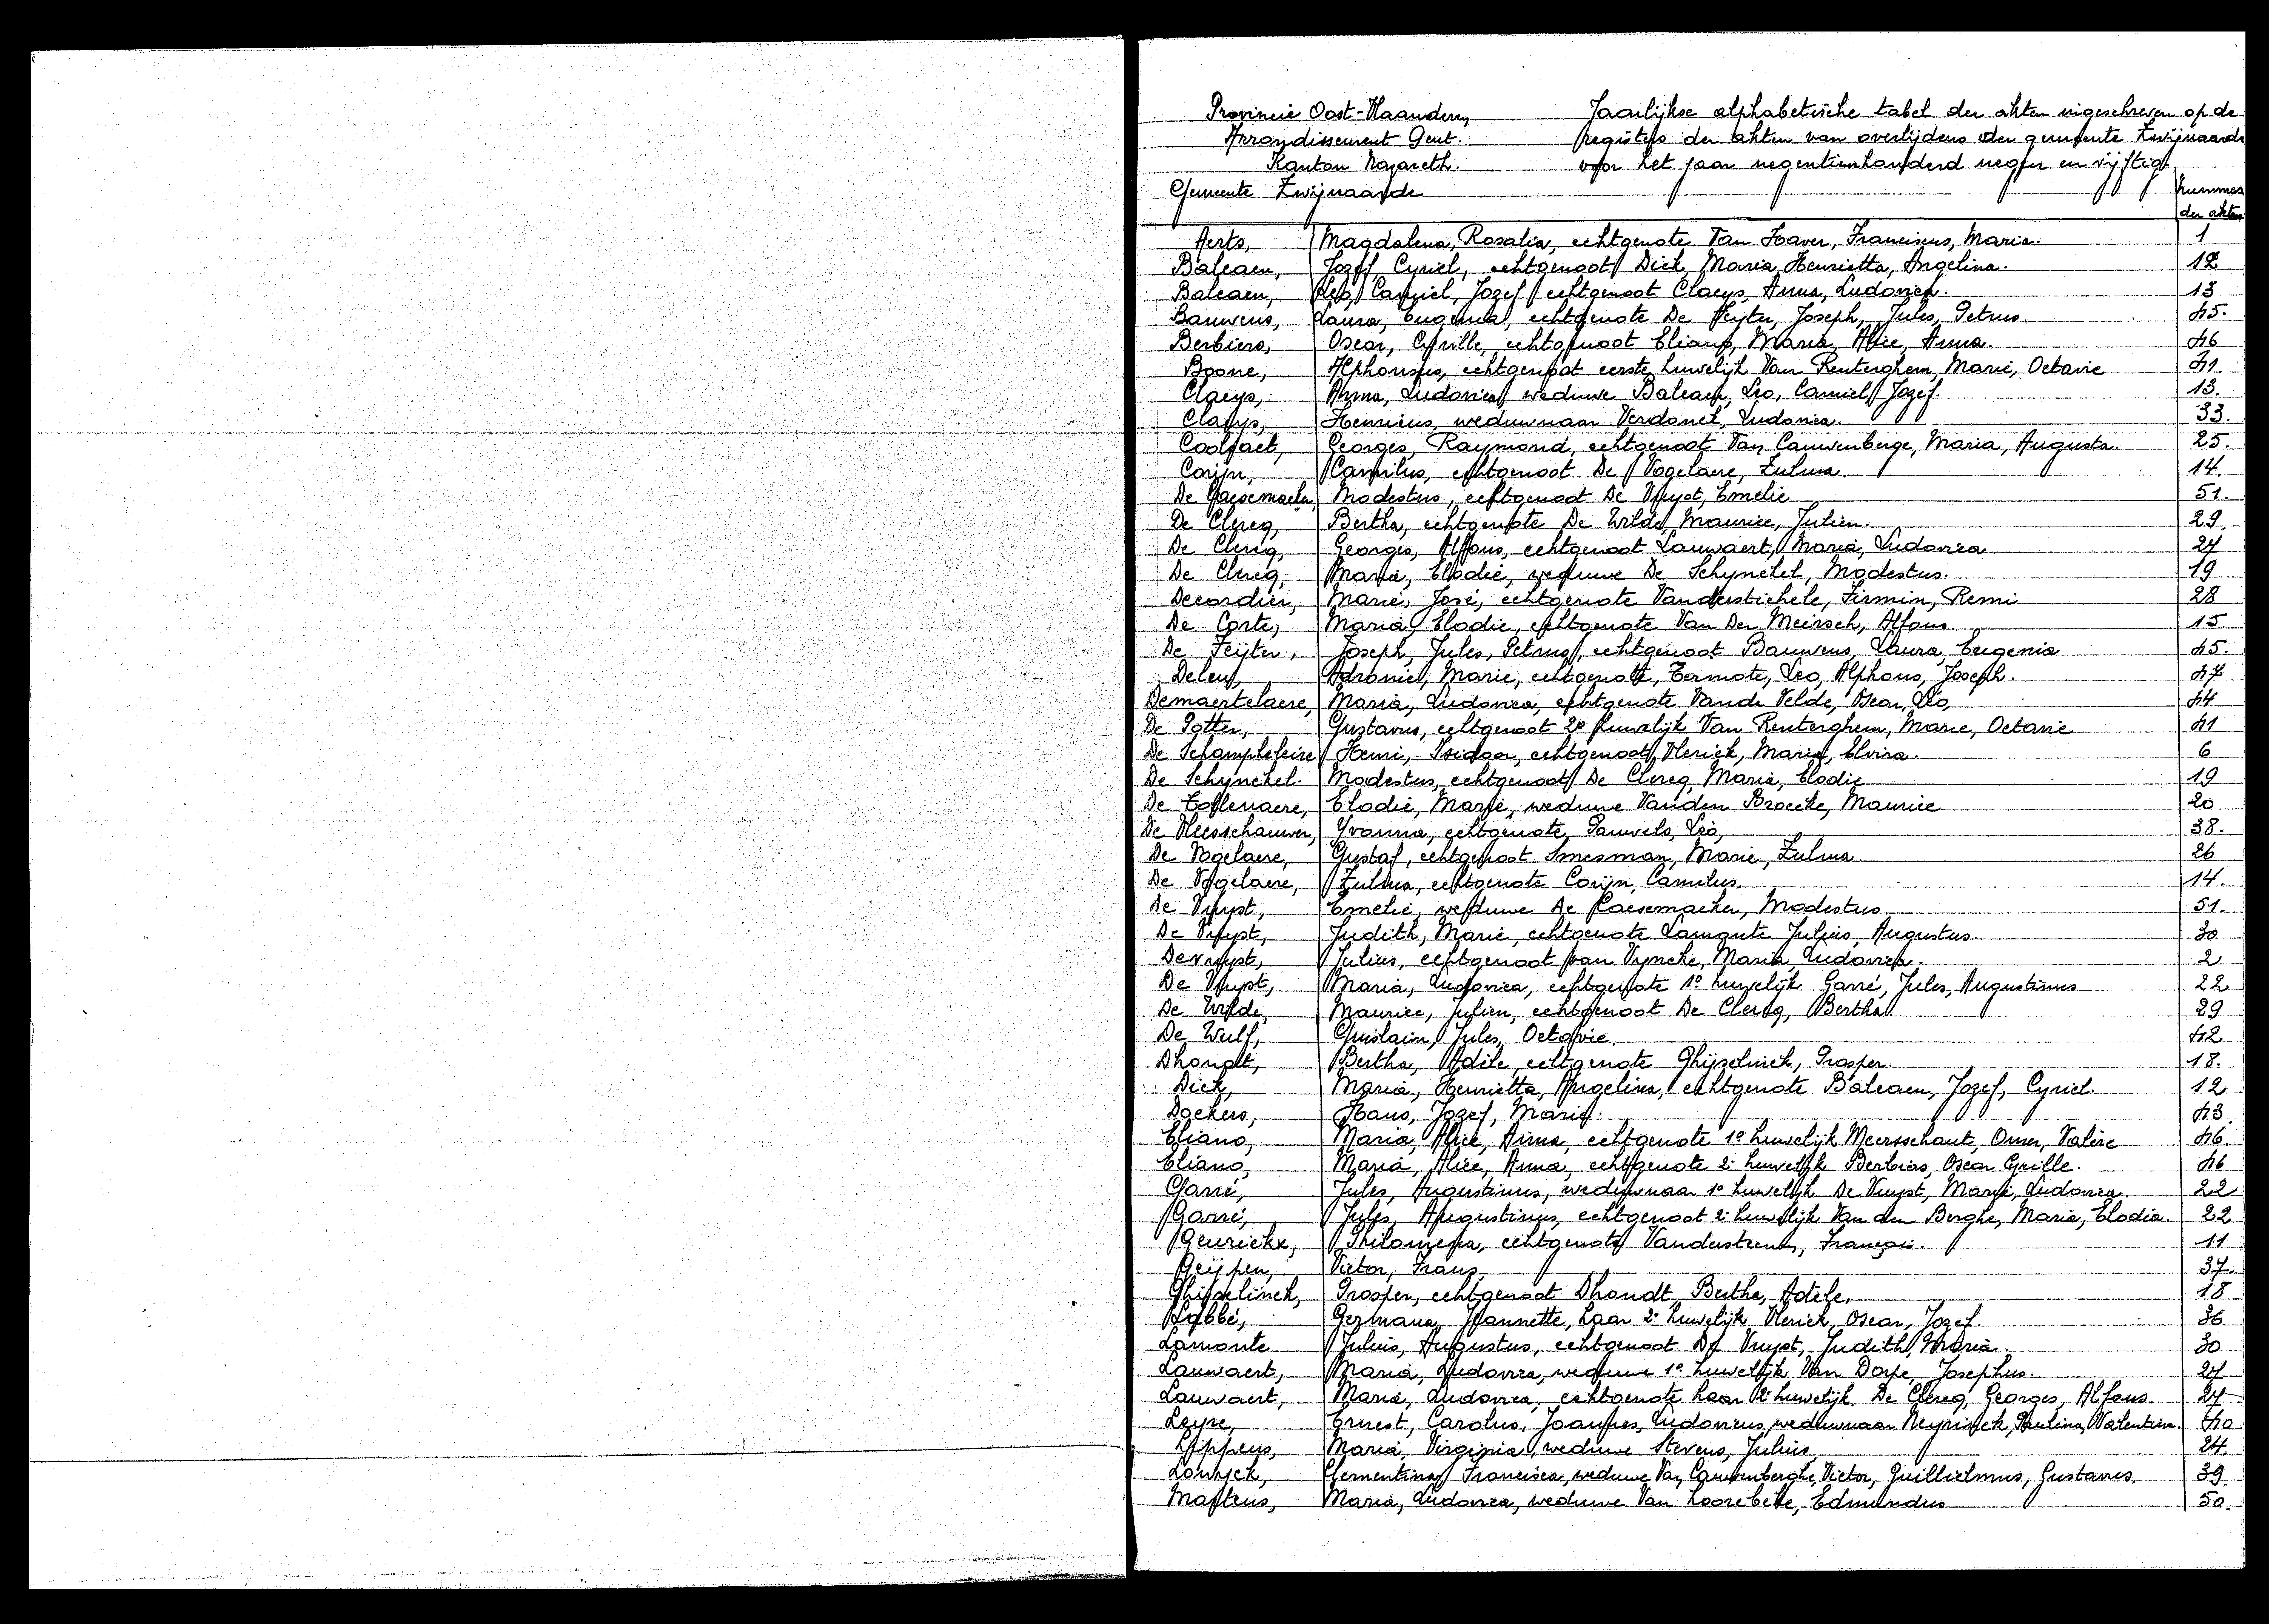 Provincie Oost-Vlaanderen,
Arrondissement Gent.
Kanton Nazareth.
Gemeente Zwijnaarde
Jaarlijkse alphabetische tabel der akten ingeschreven op de
registers der akten van overlijdens der gemeente Zwijnaarde
voor het jaar negentienhonderd negen en vijftig
nummers
der akten
Aerts, Magdalena, Rosalia, echtgenote Van Haver, Franciscus, Maria. 1
Balcaen, Jozef, Cyriel, echtgenoot Dick, Maria, Henrietta, Angelina. 12
Balcaen, Leo, Camiel, Jozef echtgenoot Claeys, Anna, Ludovica. 13
Bauwens, Laura, Eugenia, echtgenote De Feijter, Joseph, Jules, Petrus. 45.
Berbiers, Oscar, Cyrille, echtgenoot Eliano, Maria, Alice, Anna. 46
Boone, Alphonsus, echtgenoot eerste huwelijk Van Renterghem, Marie, Octavie 41.
Claeys, Anna, Ludovica, weduwe Balcaen, Leo, Camiel, Jozef. 13.
Claeys, Henricus, weduwnaar Verdonck, Ludovica. 33.
Coolsaet, Georges, Raymond, echtgenoot Van Cauwenberge, Maria, Augusta. 25.
Corijn, Camilus, echtgenoot De Vogelaere, Zulma 14.
De Caesemaeker, Modestus, echtgenoot De Vuyst, Emelie 51.
De Clercq, Bertha, echtgenote De Wilde, Maurice, Julien. 29
De Clercq, Georges, Alfons, echtgenoot Lauwaert, Maria, Ludovica 27
De Clercq, Maria, Elodie, weduwe De Schynckel, Modestus. 19
Decordier, Marie, José, echtgenote Vanderstichele, Firmin, Remi 28
De Corte, Maria, Elodie, echtgenote Van Den Meirsch, Alfons 15
De Feijter, Joseph, Jules, Petrus, echtgenoot Bauwens, Laura, Eugenia 45.
Deleu, Marie, echtgenote, Termote, Leo, Alphons, Joseph. 47
Demaertelaere, Maria, Ludovica, echtgenote Vande Velde, Oscar, Leo, 44
De Potter, Gustavus, echtgenoot 2e huwelijk Van Renterghem, Marie, Octavie 41
De Schampheleire Henri, Isidoor, echtgenoot Vlerick, Maria, Elvira. 6
De Schynckel. Modestus, echtgenoot De Clercq, Maria, Elodie 19
De Tollenaere, Elodie, Marie, weduwe Vanden Broecke, Maurice 20
De Vleesschauwer, Yvonna, echtgenote, Pauwels, Leo, 38.
De Vogelaere, Gustaf, echtgenoot Smesman, Marie, Zulma 26
De Vogelaere, Zulma, echtgenote Corijn, Camilus. 14.
De Vuyst, Emelie, weduwe De Caesemaeker, Modestus 51.
De Vuyst, Judith, Marie, echtgenote Lamonte Julius, Augustus. 30
Devuyst, Julius, echtgenoot van Vyncke, Maria, Ludovica. 2
De Vuyst, Maria, Ludovica, echtgenote 1o huwelijk Garré, Jules, Augustinus 22
De Wilde, Maurice, Julien, echtgenoot De Clercq, Bertha 29
De Wulf, Guislain, Jules, Octavie. 42
Dhondt, Bertha, Adèle, echtgenote Ghijselinck, Prosper. 18.
Dick, Maria, Henrietta, Angelina, echtgenote Balcaen, Jozef, Cyriel. 12
Dockers, Hans, Jozef, Maria. 43
Eliano, Maria, Alice, Anna, echtgenote 1o huwelijk Meersschaut, Omer, Valère 46.
Eliano, Maria, Alice, Anna, echtgenote 2e huwelijk Berbiers, Oscar Cyrille. 46
Garré, Jules, Augustinus, weduwnaar 1o huwelijk De Vuyst, Maria, Ludovica. 22
Garré, Jules, Augustinus, echtgenoot 2e huwelijk Van den Berghe, Maria, Elodia. 22
Geurickx, Philomena, echtgenote Vanderstraeten, François. 11
Geijpen, Victor, Frans 37.
Ghijselinck, Prosper, echtgenoot Dhondt Bertha, Adèle. 18
Labbé, Germana, Jeannette, haar 2e huwelijk Vlerick, Oscar, Jozef 36
Lamonte Julius, Augustus, echtgenoot De Vuyst, Judith, Maria. 30
Lauwaert, Maria, Ludovica, weduwe 1e huwelijk Van Dorpe, Josephus. 27
Lauwaert, Maria, Ludovica, echtgenote haar 2e huwelijk De Clercq, Georges, Alfons. 27
Leyre, Ernest, Carolus, Joannes, Ludovicus, weduwnaar Neyrinck, Paulina, Valentina. 40
Lippens, Maria, Virginia, weduwe Stevens, Julius, 24.
Lowyck, Clementina, Francisca, weduwe Van Cauwenberghe, Victor, Guillielmus, Gustavus. 39
Martens, Maria, Ludovica, weduwe Van Hoorebeke, Edmundus 50.